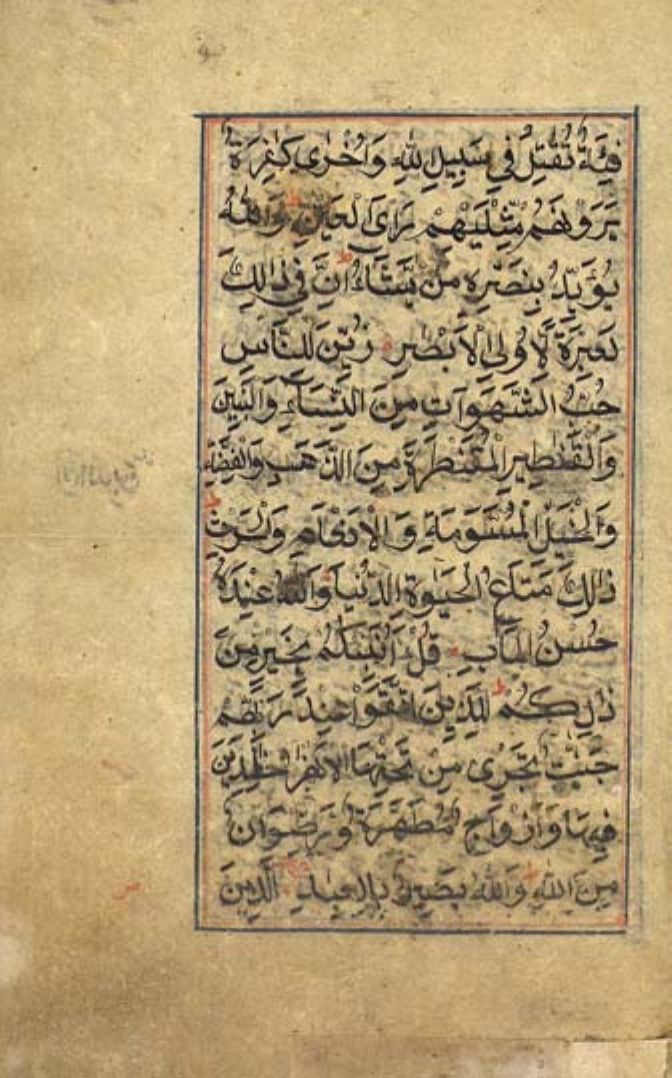 فِئَةٌ تُقٰتِلُ فِي سَبِيلِ اللّٰهِ وَاُخْرٰى كَافِرَةٌ
يَرَوْنَهُمْ مِثْلَيْهِمْ رَاْيَ الْعَيْنِ وَاللّٰهُ
يُؤَيِّدُ بِنَصْرِهٖ مَنْ يَشَآءُ اِنَّ فِي ذٰلِكَ
لَعِبْرَةً لِاُولِى الْاَبْصٰرِ زُيِّنَ لِلنَّاسِ
حُبُّ الشَّهَوَاتِ مِنَ النِّسَآءِ وَالْبَنِينَ
وَالْقَنٰطِيرِ الْمُقَنْطَرَةِ مِنَ الذَّهَبِ وَالْفِضَّةِ
وَالْخَيْلِ الْمُسَوَّمَةِ وَالْاَنْعَامِ وَالْحَرْثِ
ذٰلِكَ مَتَاعُ الْحَيٰوةِ الدُّنْيَا وَاللّٰهُ عِنْدَهٗ
حُسْنُ الْمَاٰبِ قُلْ اَؤُنَبِّئُكُمْ بِخَيْرٍ مِنْ
ذٰلِكُمْ لِلَّذِينَ اتَّقَوْا عِنْدَ رَبِّهِمْ
جَنّٰتٌ تَجْرِى مِنْ تَحْتِهَا الْاَنْهٰرُ خٰلِدِينَ
فِيهَا وَاَزْوَاجٌ مُطَهَّرَةٌ وَرِضْوَانٌ
مِنَ اللّٰهِ وَاللّٰهُ بَصِيرٌ بِالْعِبَادِ الَّذِينَ